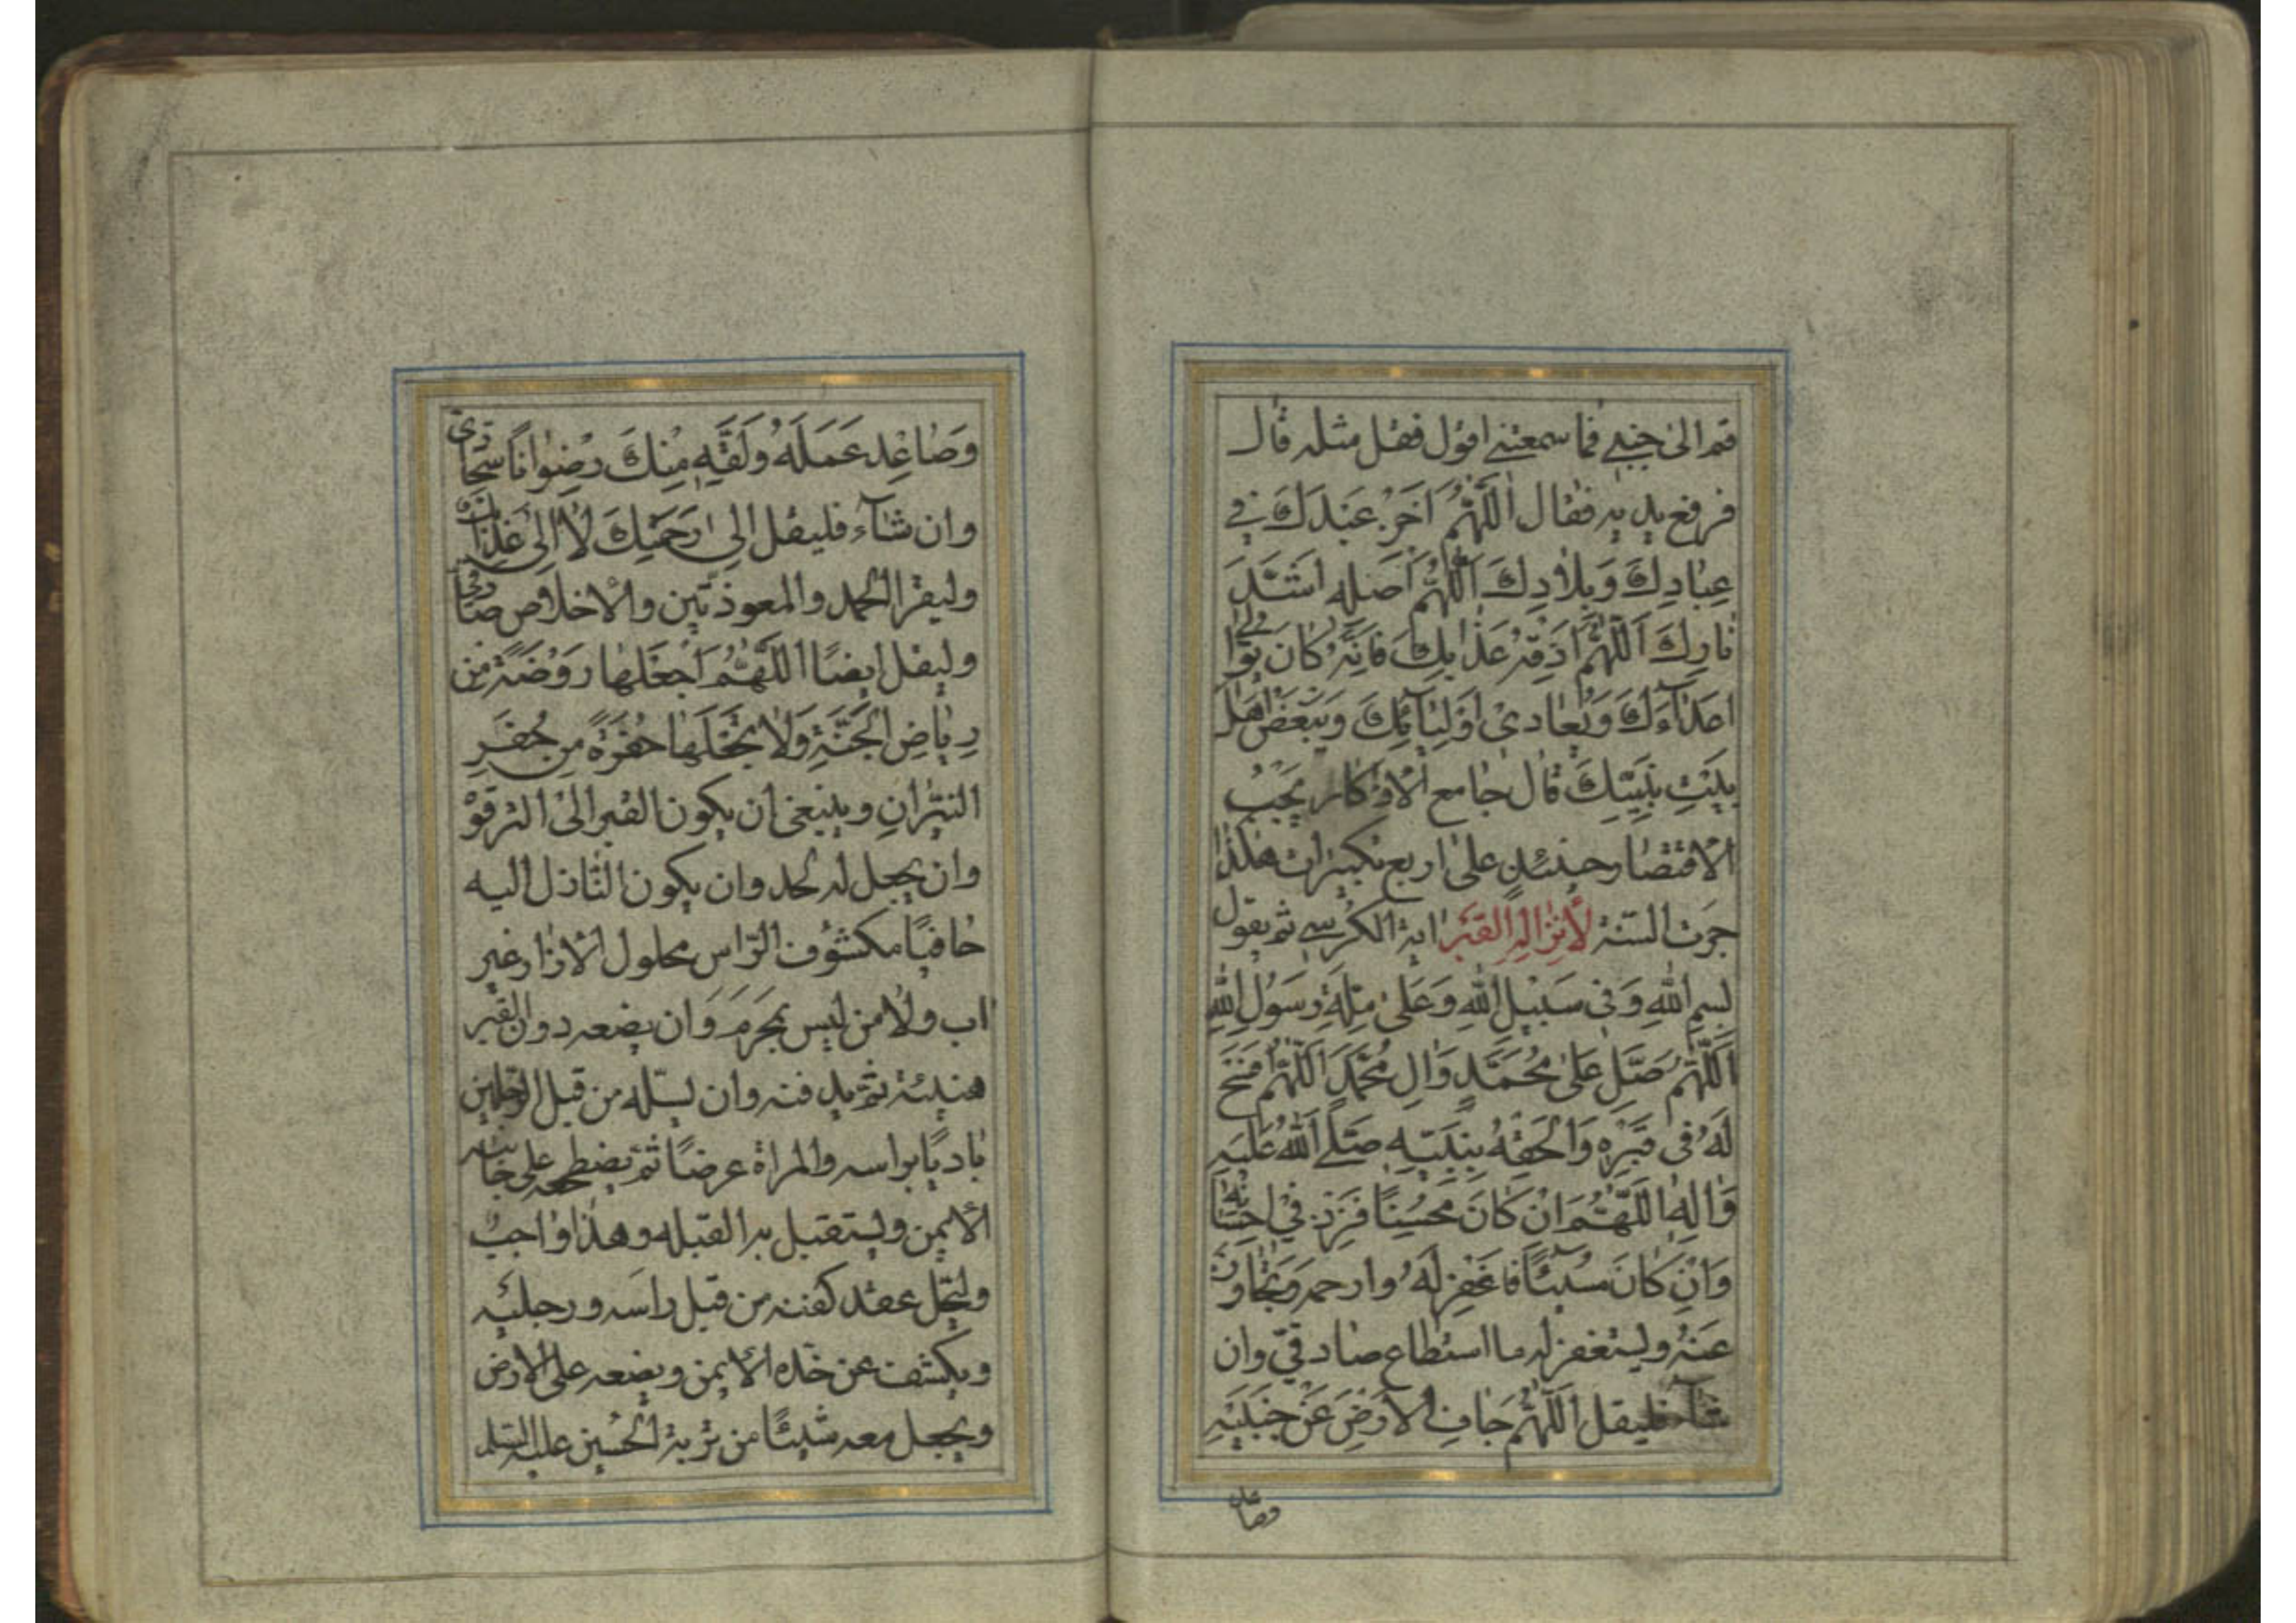 قم الى جنبي فما سمعتني اقول فقل مثله قال
فرفع يديه فقال اَللّٰهُمَّ اَخْزِ عَبْدَكَ في
عِبَادِكَ وَبِلَادِكَ اَللّٰهُمَّ اَصْلِهِ اَشَدَّ
نَارِكَ اَللّٰهُمَّ اَذِقْهُ عَذَابِكَ فَاِنَّهُ كَانَ يَتَوَالى
اَعْدَاءَكَ وَيُعَادِى اَوْلِيَائِكَ وَيُبْغِضُ اَهْلَ
بَيْتِ نَبِيِّكَ قال جامع الاذكار يجب
الاقتصار حينئذٍ على اربع تكبيرات هكذا
جرت السنة لِاِنْزَالِهِ الْقَبْر اية الكرسي ثم يقول
بسم اللهِ وَفى سَبيلِ اللهِ وَعَلىٰ مِلَّةِ رَسُولِ اللهِ
اَللّٰهُمَّ صَلِّ عَلىٰ مُحَمَّدٍ وَاٰلِ مُحَمَّدٍ اَللّٰهُمَّ افْسَحْ
لَهُ فى قَبْرِهِ وَاَلْحِقْهُ بِنَبِيِّهِ صَلَّى اللهُ عَلَيْهِ
وَاٰلِهِ اَللّٰهُمَّ اِنْ كَانَ مُحْسِنًا فَزِدْ في اِحْسَانِهِ
وَاِنْ كَانَ مُسيئًا فَاغْفِرْ لَهُ وارحمه وَتَجَاوَزْ
عَنْهُ وليستغفر له ما استطاع صادقيّ وان
شآء فليقل اَللّٰهُمَّ جَافِ الْاَرْضَ عَنْ جَنْبَيْهِ
وصاعد
وَصَاعِد عَمَلَهُ وَلَقِّهِ مِنْكَ رِضْوانًا سجادى
وان شآء فليقل اِلىٰ رَحْمَتِكَ لَا اِلىٰ عَذَابِكَ
وليقرا الحمد والمعوذتين والاخلاص صادقى
وليقل ايضًا اَللّٰهُمَّ اجْعَلْهَا رَوْضَةً مِنْ
رِيَاضِ الْجَنَّةِ وَلَا تَجْعَلْهَا حُفْرَةً مِنْ حُفَرِ
النيرانِ وينبغى ان يكون القبر الى الترقوة
وان يجعل له لحد وان يكون النازل اليه
حافيًا مكشوف الرّاس محلول الازار غير
اب ولا من ليس بمَحرَم وَان يضعه دون القبر
هنيئة ثم يدفنه وان يسلّه من قبل الرجلين
باديًا براسه والمراة عرضًا ثم يضطجعه على جانبه
الايمن ويستقبل به القبله وهذا واجب
وليحل عقد كفنه من قبل راسه ورجليه
ويكشف عن خده الايمن ويضعه على الارض
ويجعل معه شيئًا من تربة الحُسين عليه السلم